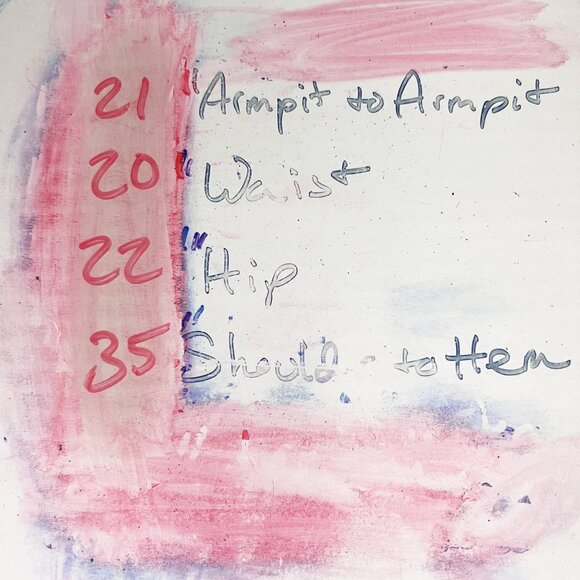 21" Armpit to Armpit
20" Waist
22" Hip
35" Shoulder to Hem